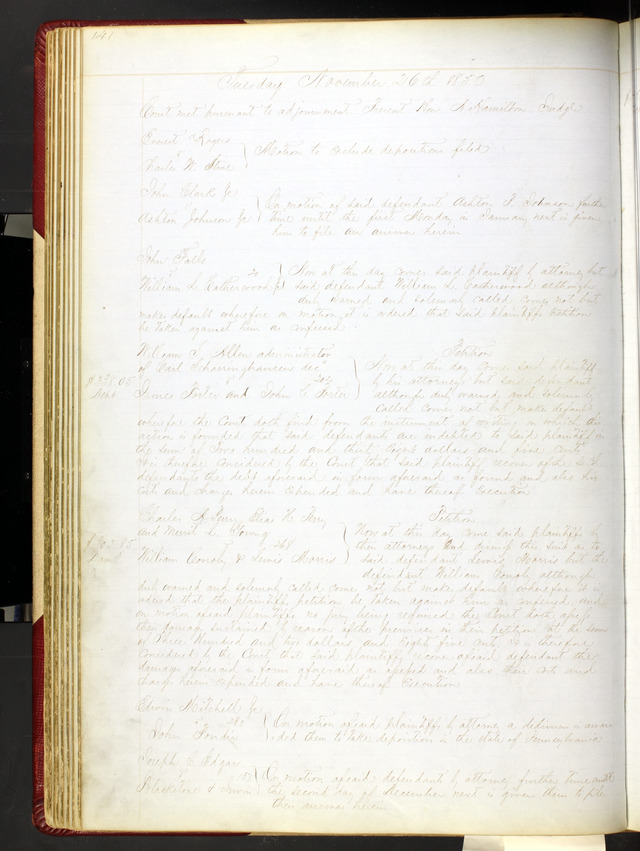 141
Tuesday November 26th 1850
Court met pursuant to adjournment Present Hon A Hamilton Judge
Ernest Rogers
Charles W Stine
Motion to exclude deposition filed
John Clark Jr
Ashton Johnson Jr
On motion of said defendant Ashton P. Johnson further
time until the first Monday in January next is given
him to file an answer herein
John Falls
William L Catherwood
Now at this day comes said plaintiff by attorney but
said defendant William L Catherwood although
duly warned and solemnly called comes not but
make default wherefore on motion it is ordered that said plaintiffs petition
be taken against him as confessed
William T. Allen administrator
of Carl Scharringhausen decd
and John C Porter
Petition
Now at this day come said plaintiff
by his attorney but said defendant
although duly warned and solemnly
called come not but make default
wherefore the Court doth find from the instrument of writing on which this
action is founded that said defendants are indebted to said plaintiff in
the sum of Two hundred and thirty eight dollars and five cents
It is therefore considered by the Court that said plaintiff recover of the said
defendants the debt aforesaid in form aforesaid as found and also his
costs and charges herein expended and have thereof Execution
$238.05
Debt
and Merit L. Young
William Conoly & Lewis Morris
Petition
Now at this day come said plaintiffs by
their attorneys and dismiss this suit as to
said defendant Lewis Morris but the
defendant William Conoly although
duly warned and solemnly called come not but make default wherefore it is
ordered that the plaintiffs petition be taken against him as confessed and
on motion of said plaintiffs no jury being required the Court doth assess
their damages sustained by reason of the premises in their petition at the sum
of Three Hundred and two dollars and Eighty five cents it is therefore
considered by the Court that said plaintiffs recover of said defendant the
damages aforesaid in form aforesaid as assessed and also their costs and
charges herein expended and have thereof Execution
Edwin Mitchell Jr
John
On motion of said plaintiffs by attorney a dedimus is awar
ded them to take deposition in the state of Pennsylvania
Joseph Edgar
Blackstone & Irwin
On motion of said defendants by attorney further time until
the second day of December next is given them to file
their answer herein